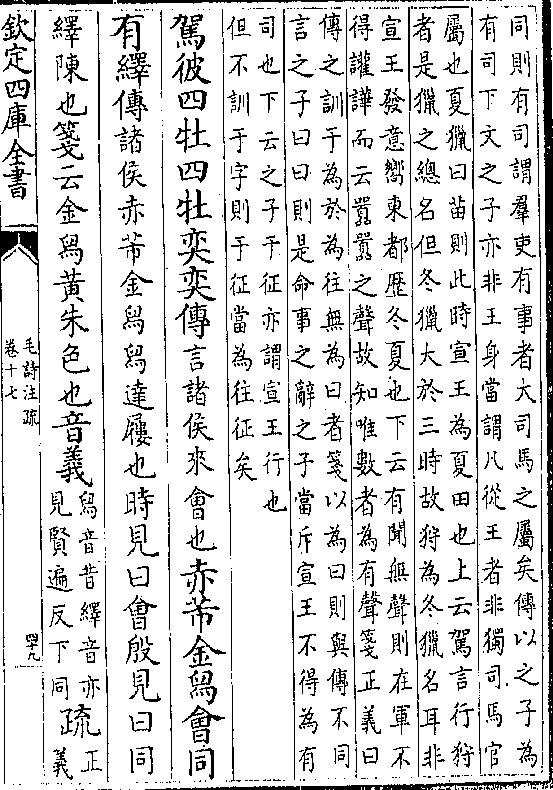 同則有司謂羣吏有事者大司馬之屬矣傳以之子為
有司下文之子亦非王身當謂凡從王者非獨司馬官
屬也夏獵曰苗則此時宣王為夏田也上云駕言行狩
者是獵之總名但冬獵大於三時故狩為冬獵名耳非
宣王發意嚮東都歷冬夏也下云有聞無聲則在軍不
得讙譁而云囂囂之聲故知唯數者為有聲箋正義曰
傳之訓于為於為往無為曰者箋以為曰則與傳不同
言之子曰曰則是命事之辭之子當斥宣王不得為有
司也下云之子于征亦謂宣王行也
但不訓于字則于征當為往征矣
駕彼四牡四牡奕奕傳言諸侯來會也赤芾金舄會同
有繹傳諸侯赤芾金舄舄達屨也時見曰會殷見曰同
繹陳也箋云金舄黃朱色也音義舄音昔繹音亦
見賢遍反下同疏正
義
欽定四庫全書
毛詩注疏
卷十七
四十九